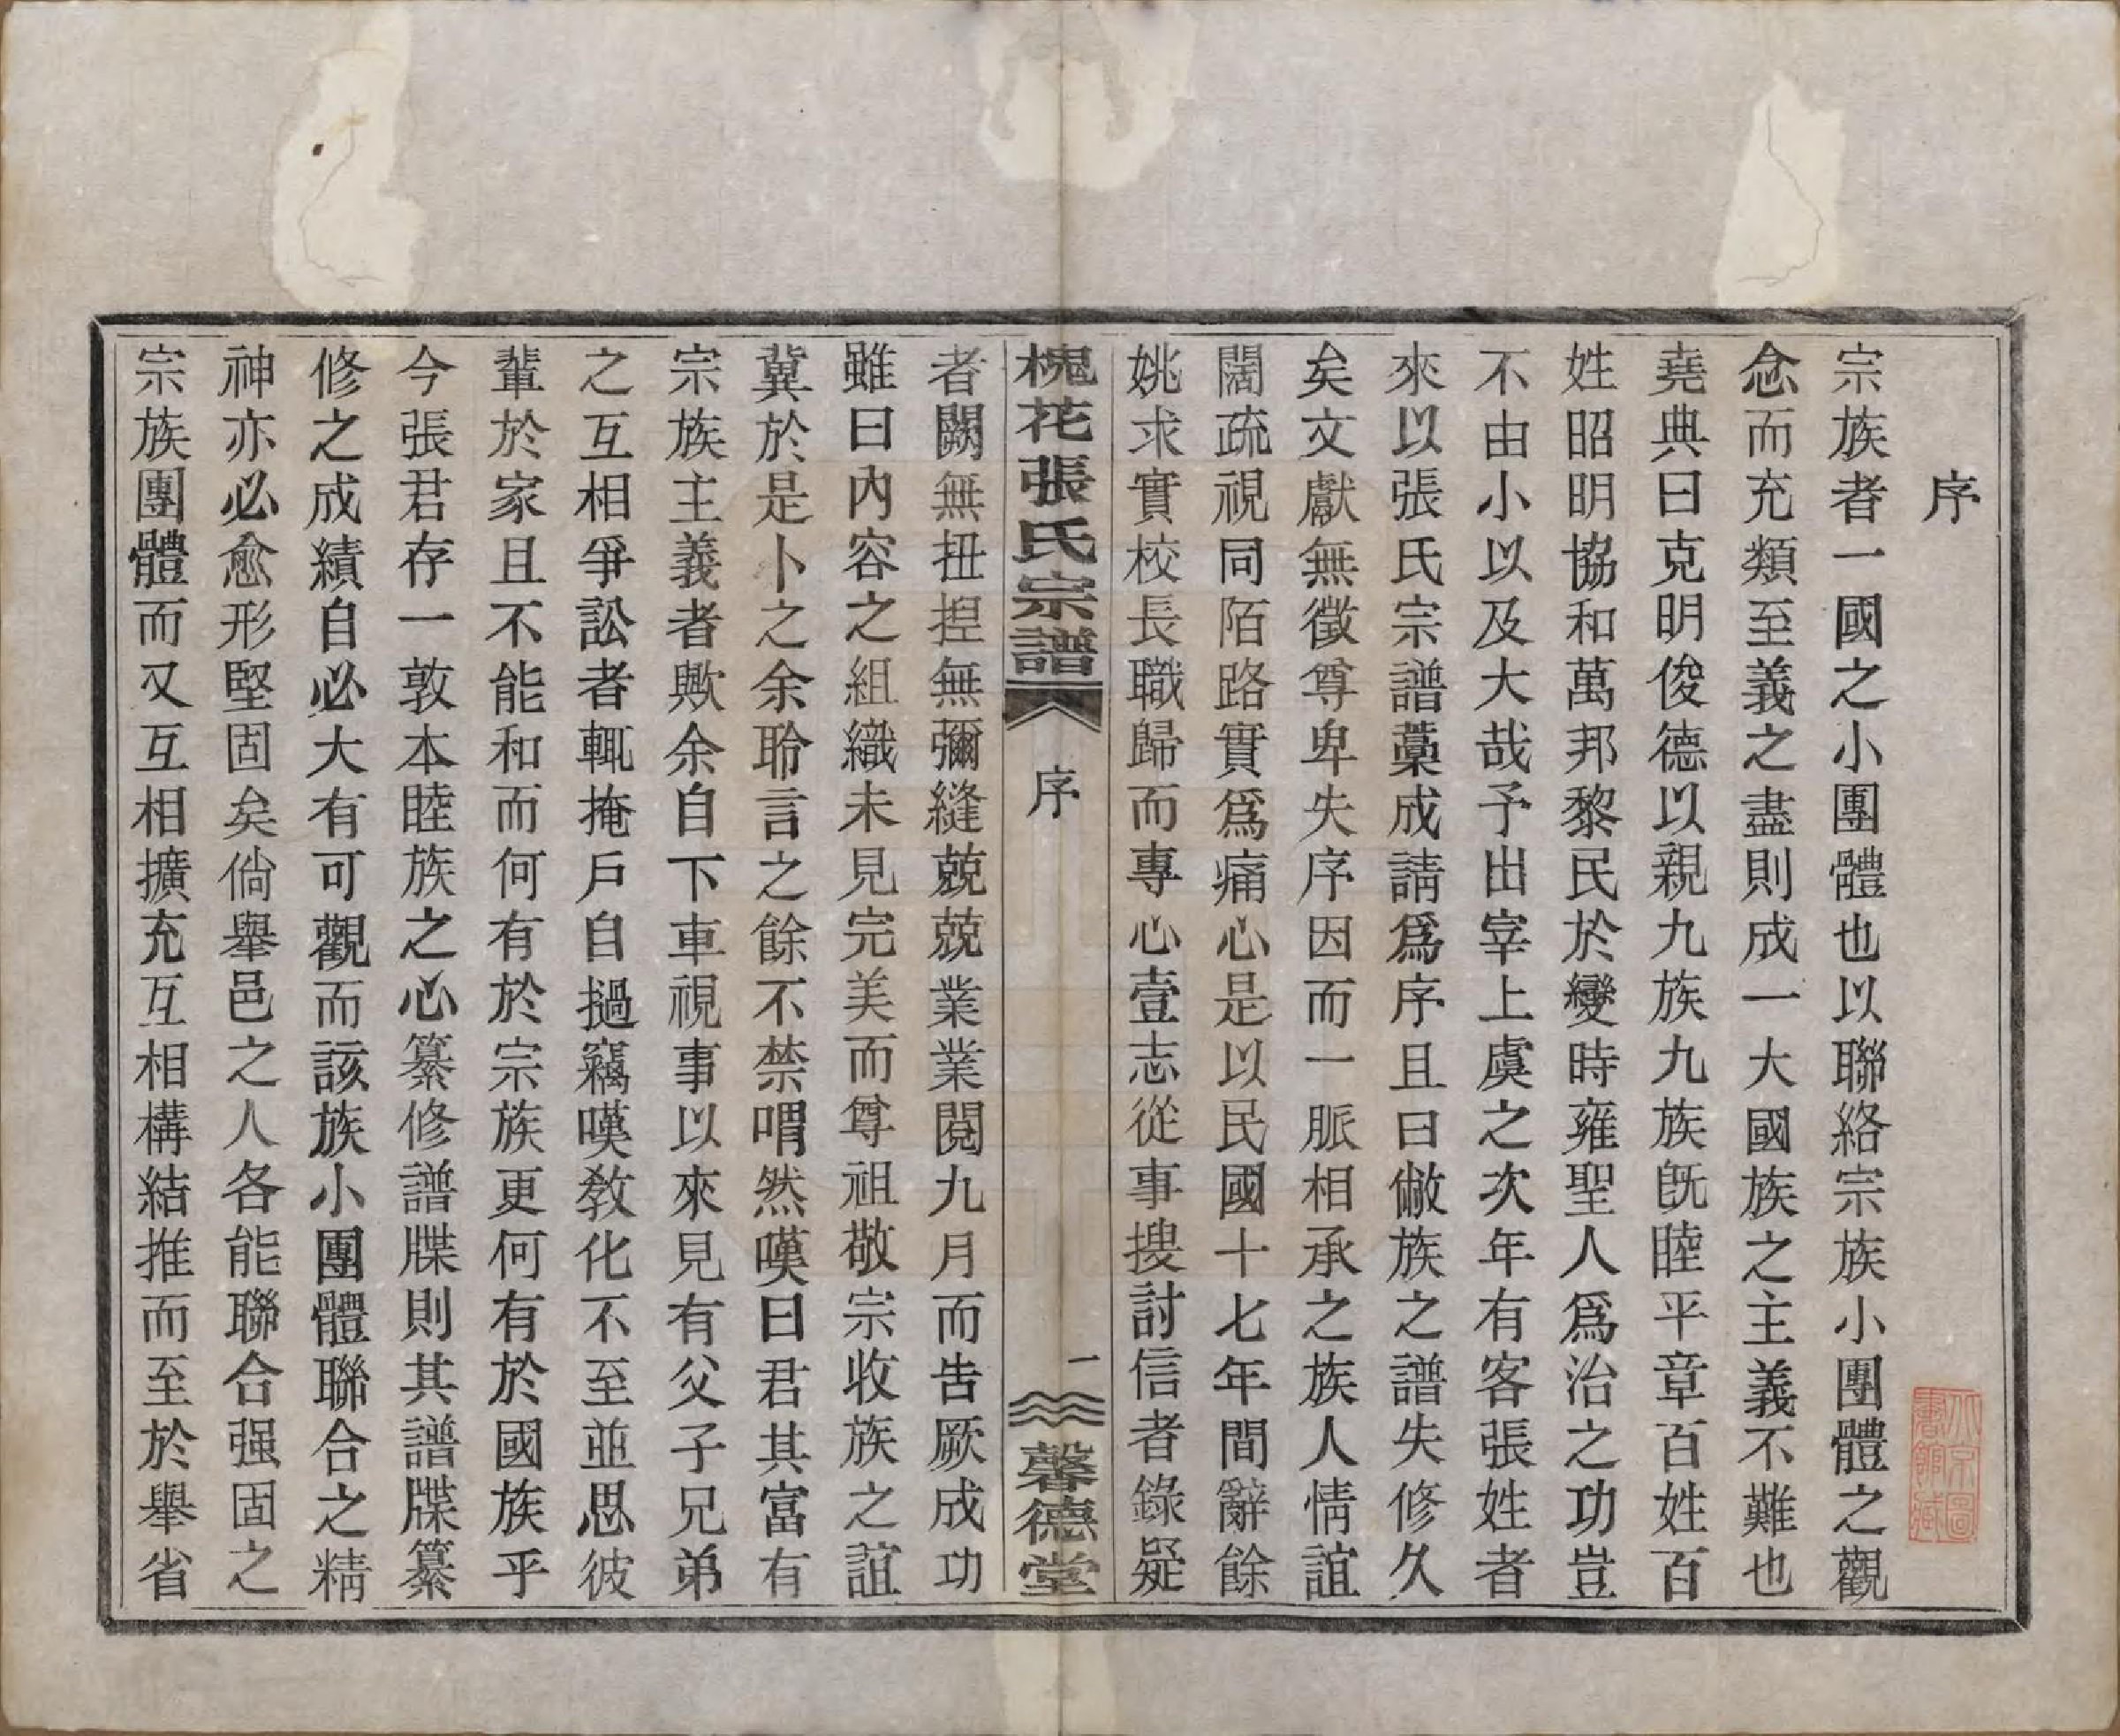 序
宗族者一國之小團體也以聯絡宗族小團體之觀
念而充類至義之盡則成一大國族之主義不難也
堯典曰克明俊德以親九族九族旣睦平章百姓百
姓昭明協和萬邦黎民於變時雍聖人爲治之功豈
不由小以及大哉予出宰上虞之次年有客張姓者
來以張氏宗譜藳成請爲序且曰僘族之譜失修久
矣文獻無徵尊卑失序因而一脈相承之族人情誼
闊疏視同陌路實爲痛心是以民國十七年間辭餘
姚求實校長職歸而專心壹志從事搜討信者錄疑
者闕無扭揑無彌縫兢兢業業閱九月而告厥成功
雖曰內容之組織未見完美而尊祖敬宗收族之誼
冀於是卜之余聆言之餘不禁喟然嘆曰君其富有
宗族主義者歟余自下車視事以來見有父子兄弟
之互相爭訟者輒掩戶自撾竊嘆教化不至並思彼
輩於家且不能和而何有於宗族更何有於國族乎
今張君存一敦本睦族之心纂修譜牒則其譜牒纂
修之成績自必大有可觀而該族小團體聯合之精
神亦必愈形堅固矣倘舉邑之人各能聯合强固之
宗族團體而又互相擴充互相構結推而至於舉省
槐花張氏宗譜
序
一
馨德堂